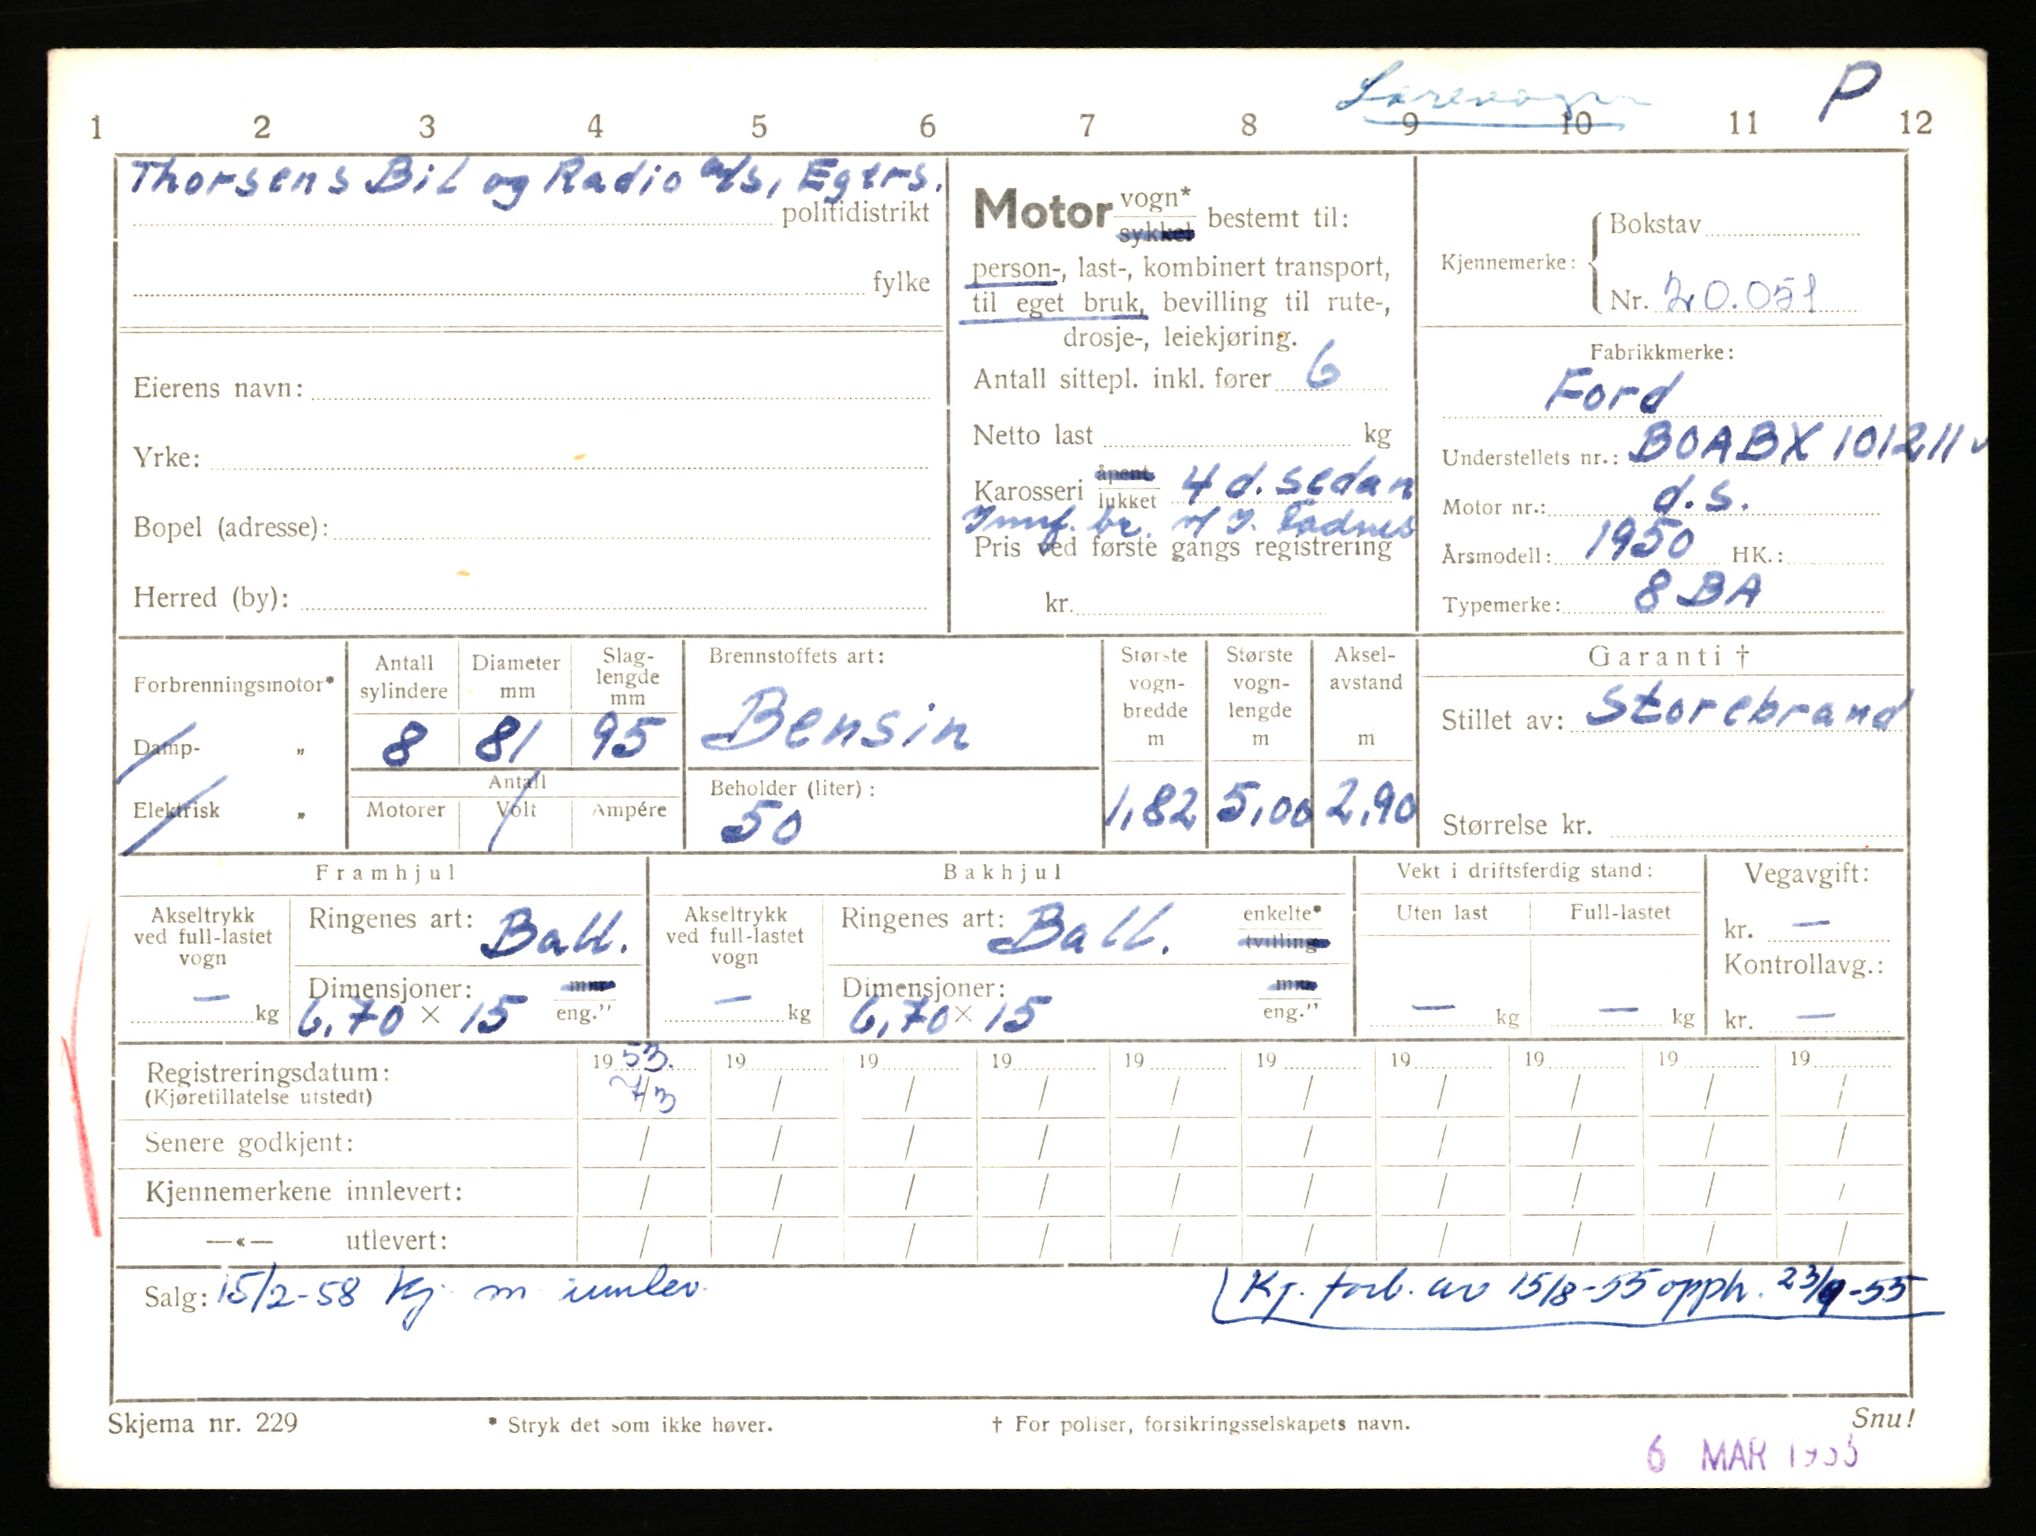 Lærevogn P
1 2 3 4 5 6 7 8 9 10 11 12
Thorsens Bil og Radio a/s, Egers.
politidistrikt
fylke
Eierens navn:
Yrke:
Bopel (adresse):
Herred (by):
Motor vogn* sykkel bestemt til:
person-, last-, kombinert transport,
til eget bruk, bevilling til rute-,
drosje-, leiekjøring.
Antall sittepl. inkl. fører 6
Netto last kg
Karosseri åpent lukket 4 d. sedan
Innf. br. v/ J. Fadnes
Pris ved første gangs registrering
kr.
Kjennemerke: Bokstav
Nr. 20.051
Fabrikkmerke:
Ford
Understellets nr.: BOABX 101211
Motor nr.: d.s.
Årsmodell: 1950 HK.:
Typemerke: 8 BA
Forbrenningsmotor*
Damp- "
Elektrisk "
Antall sylindere 8
Diameter mm 81
Slaglengde mm 95
Antall
Motorer Volt Ampére
Brennstoffets art:
Bensin
Beholder (liter):
50
Største vogn-bredde m 1,82
Største vogn-lengde m 5,00
Aksel-avstand m 2,90
Garanti †
Stillet av: Storebrand
Størrelse kr.
Framhjul
Akseltrykk ved full-lastet vogn
— kg
Ringenes art: Ball.
Dimensjoner: mm
6,70 × 15 eng."
Bakhjul
Akseltrykk ved full-lastet vogn
— kg
Ringenes art: Ball. enkelte* tvilling
Dimensjoner: mm
6,70 × 15 eng."
Vekt i driftsferdig stand:
Uten last Full-lastet
— kg — kg
Vegavgift:
kr. —
Kontrollavg.:
kr. —
Registreringsdatum: 1953. 19 19 19 19 19 19 19 19 19
(Kjøretillatelse utstedt) 7/3 / / / / / / / / /
Senere godkjent: / / / / / / / / / /
Kjennemerkene innlevert: / / / / / / / / / /
—«— utlevert: / / / / / / / / / /
Salg: 15/2-58 Kj. m innlev.
Kj. forb. av 15/8-55 opph. 23/9-55
Skjema nr. 229
* Stryk det som ikke høver.
† For poliser, forsikringsselskapets navn.
Snu!
6 MAR 1953